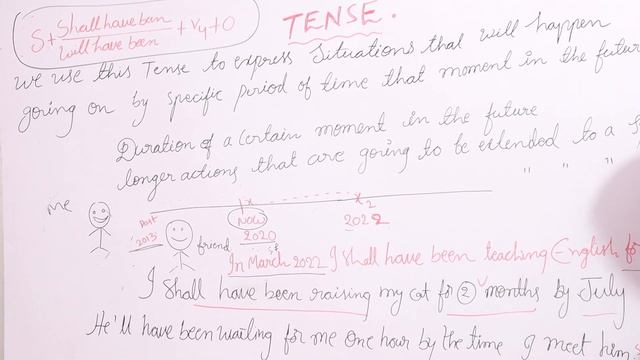 TENSE.
S + Shall have been / will have been + V4 + O
we use this Tense to express Situations that will happen
going on by specific period of time that moment in the future
Duration of a Certain moment in the future
longer actions that are going to be extended to a
" " "
me
Past 2013
friend
1 x x 2
Now 2020
2022
In March 2022 I shall have been teaching English for
I Shall have been raising my cat for 2 months by July
He'll have been waiting for me one hour by the time I meet him